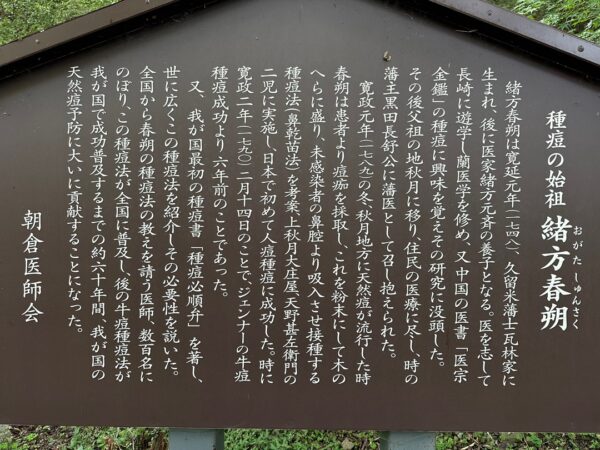 種痘の始祖 緒方春朔
おがた しゅんさく
緒方春朔は寛延元年(一七四八)、久留米藩士瓦林家に
生まれ、後に医家緒方元斉の養子となる。医を志して
長崎に遊学し蘭医学を修め、又中国の医書「医宗
金鑑」の種痘に興味を覚えその研究に没頭した。
その後父祖の地秋月に移り、住民の医療に尽し、時の
藩主黒田長舒公に藩医として召し抱えられた。
寛政元年(一七八九)の冬、秋月地方に天然痘が流行した時
春朔は患者より痘痂を採取し、これを粉末にして木の
へらに盛り、未感染者の鼻腔より吸入させ接種する
種痘法(鼻乾苗法)を考案、上秋月大庄屋天野甚左衛門の
二児に実施し、日本で初めて人痘種痘に成功した。時に
寛政二年(一七九〇)二月十四日のことで、ジェンナーの牛痘
種痘成功より六年前のことであった。
又、我が国最初の種痘書「種痘必順弁」を著し、
世に広くこの種痘法を紹介しその必要性を説いた。
全国から春朔の種痘法の教えを請う医師、数百名に
のぼり、この種痘法が全国に普及し、後の牛痘種痘法が
我が国で成功普及するまでの約六十年間、我が国の
天然痘予防に大いに貢献することになった。
朝倉医師会